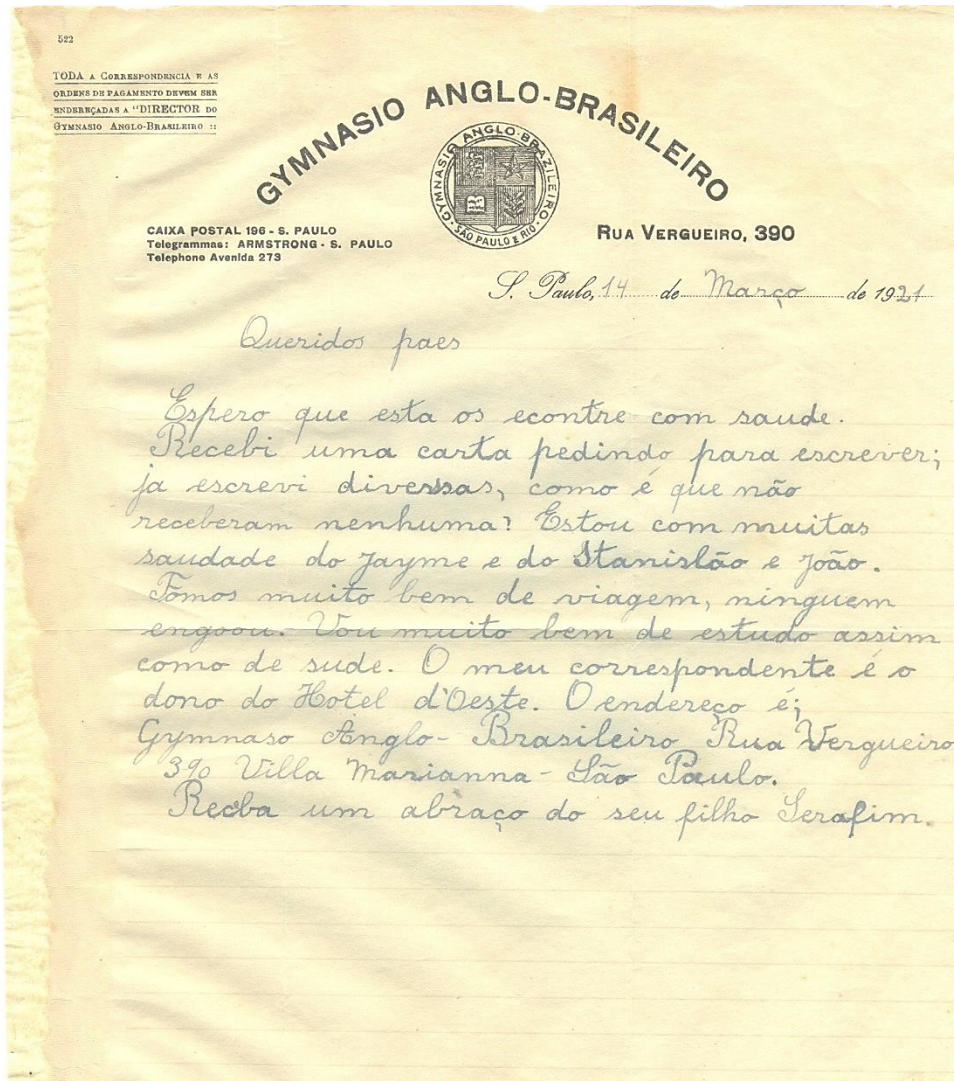 522
TODA A CORRESPONDENCIA E AS
ORDENS DE PAGAMENTO DEVEM SER
ENDEREÇADAS A "DIRECTOR DO
GYMNASIO ANGLO-BRASILEIRO ::
GYMNASIO ANGLO-BRASILEIRO
GYMNASIO ANGLO-BRAZILEIRO
SÃO PAULO E RIO
CAIXA POSTAL 196 - S. PAULO
Telegrammas: ARMSTRONG - S. PAULO
Telephone Avenida 273
RUA VERGUEIRO, 390
S. Paulo, 14 de Março de 1921
Queridos paes
Espero que esta os econtre com saude.
Recebi uma carta pedindo para escrever;
ja escrevi diversas, como é que não
receberam nenhuma? Estou com muitas
saudade do Jayme e do Stanislão e João.
Fomos muito bem de viagem, ninguem
engoou. Vou muito bem de estudo assim
como de sude. O meu correspondente é o
dono do Hotel d'Oeste. O endereço é;
Gymnaso Anglo-Brasileiro Rua Vergueiro
390 Villa Marianna - São Paulo.
Receba um abraço do seu filho Serafim.